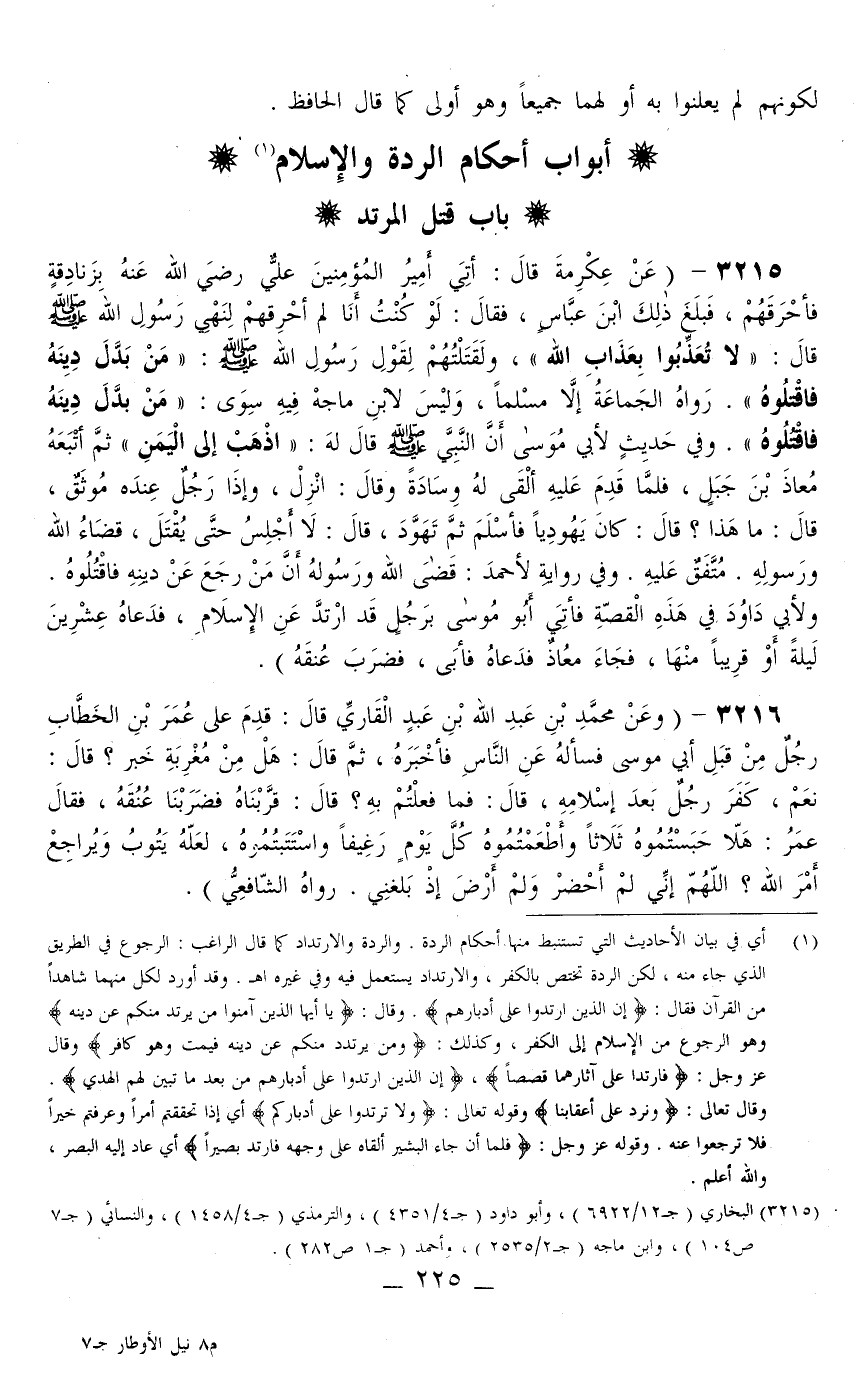 لكونهم لم يعلنوا به أو لهما جميعاً وهو أولى كما قال الحافظ .
أبواب أحكام الردة والإسلام(١)
باب قتل المرتد
٣٢١٥ - ( عَنْ عِكْرِمةَ قالَ : أتِيَ أَمِيرُ المُؤمِنينَ عليٌّ رضيَ الله عَنهُ بِزَنادِقةٍ
فأحْرَقَهُمْ ، فَبلَغَ ذٰلِكَ ابْنَ عبَّاسٍ ، فقالَ : لَوْ كُنْتُ أَنَا لم أحْرِقهمْ لِنَهْيِ رَسُولِ الله ﷺ
قالَ : « لا تُعَذِّبُوا بِعَذَابِ الله » ، ولَقَتَلْتُهُمْ لِقَوْلِ رَسُولِ الله ﷺ : « مَنْ بَدَّلَ دِينَهُ
فاقْتلُوهُ » . رَواهُ الجَماعَةُ إلَّا مسْلماً ، وَليْسَ لابنِ ماجهْ فِيهِ سِوَى : « مَنْ بدَّلَ دِينَهُ
فاقْتُلُوهُ » . وفي حَديثٍ لأبي مُوَسىٰ أنَّ النَّبيَّ ﷺ قالَ لهَ : « اذْهَبْ إلى الْيَمَنِ » ثمَّ أتْبَعَهُ
مُعاذَ بْنَ جَبَلٍ ، فلمَّا قَدِمَ عَليهِ ألْقَى لهُ وِسَادَةً وقالَ : انْزِلْ ، وإذَا رَجُلٌ عِندَه مُوثَقٌ ،
قالَ : ما هَذا ؟ قالَ : كانَ يَهُودِياً فأسْلَمَ ثمَّ تَهَوَّدَ ، قالَ : لَا أَجْلِسُ حتَّى يُقْتَلَ ، قضَاءُ الله
ورَسولِهِ . مُتَّفَقٌ عَليهِ . وفي روايةٍ لأحمدَ : قَضَىٰ الله ورَسُولهُ أنَّ مَنْ رجَعَ عَنْ دينِهِ فاقْتُلُوهُ .
ولأبي دَاوُدَ في هَذَهِ القصّةِ فأتِيَ أَبُو موسىٰ بَرجُلٍ قَد ارْتدَّ عَنِ الإِسلَامِ ، فدَعاهُ عِشْرِينَ
لَيلةً أَوْ قرِيباً منْهَا ، فجَاءَ معُاذٌ فدَعاهُ فأبَى ، فضرَبَ عُنقَهُ ) .
٣٢١٦ - ( وعَنْ محمَّدِ بْنِ عَبدِ الله بْنِ عَبدٍ الْقَاريِّ قالَ : قدِمَ على عُمَرَ بْنِ الخَطَّابِ
رجُلٌ مِنْ قِبَلِ أبي موسى فسألهُ عَنِ النَّاسِ فأخْبَرَهُ ، ثمَّ قالَ : هَلْ مِنْ مُغْرِبَةِ خَبرٍ ؟ قالَ :
نعَمْ ، كَفَرَ رجُلٌ بَعدَ إسْلامِهِ ، قالَ : فما فعلْتُمْ بهِ؟ قالَ : قرَّبْناهُ فضَرَبْنَا عُنُقَهُ ، فقالَ
عمَرُ : هَلّا حبَسْتُموهُ ثَلَاثاً وأطْعَمْتُموهُ كُلَّ يَوْمٍ رَغِيفاً واسْتَتَبتُمُوهُ ، لعَلّهُ يَتُوبُ وَيُراجِعُ
أَمْرَ الله ؟ اللّهُمّ إنِّي لمْ أَحْضرْ وَلمْ أَرْضَ إذْ بَلغنِي . رواهُ الشّافعِيُّ ) .
(١) أي في بيان الأحاديث التي تستنبط منها أحكام الردة . والردة والارتداد كما قال الراغب : الرجوع في الطريق
الذي جاء منه ، لكن الردة تختص بالكفر ، والارتداد يستعمل فيه وفي غيره اهـ . وقد أورد لكل منهما شاهداً
من القرآن فقال : ﴿ إن الذين ارتدوا على أدبارهم ﴾ . وقال : ﴿ يا أيها الذين آمنوا من يرتد منكم عن دينه ﴾
وهو الرجوع من الإسلام إلى الكفر ، وكذلك : ﴿ ومن يرتدد منكم عن دينه فيمت وهو كافر ﴾ وقال
عز وجل : ﴿ فارتدا على آثارهما قصصاً ﴾ ، ﴿ إن الذين ارتدوا على أدبارهم من بعد ما تبين لهم الهدي ﴾ .
وقال تعالى : ﴿ ونرد على أعقابنا ﴾ وقوله تعالى : ﴿ ولا ترتدوا على أدباركم ﴾ أي إذا تحققتم أمراً وعرفتم خيراً
فلا ترجعوا عنه . وقوله عز وجل : ﴿ فلما أن جاء البشير ألقاه على وجهه فارتد بصيراً ﴾ أي عاد إليه البصر ،
والله أعلم .
(٣٢١٥) البخاري ( جـ٦٩٢٢/١٢ ) ، وأبو داود ( جـ٤٣٥١/٤ ) ، والترمذي ( جـ١٤٥٨/٤ ) ، والنسائي ( جـ٧
ص١٠٤ ) ، وابن ماجه ( جـ٢٥٣٥/٢ ) ، وأحمد ( جـ١ ص٢٨٢ ) .
_ ٢٢٥ _
م٨ نيل الأوطار جـ٧